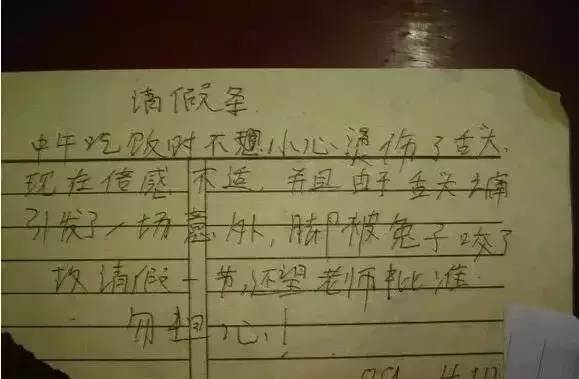 请假条
中午吃饭时不想小心烫伤了舌头,
现在倍感不适,并且由于舌头太痛
引发了一场意外,脚被兔子咬了
故请假一节,还望老师批准
勿担心!